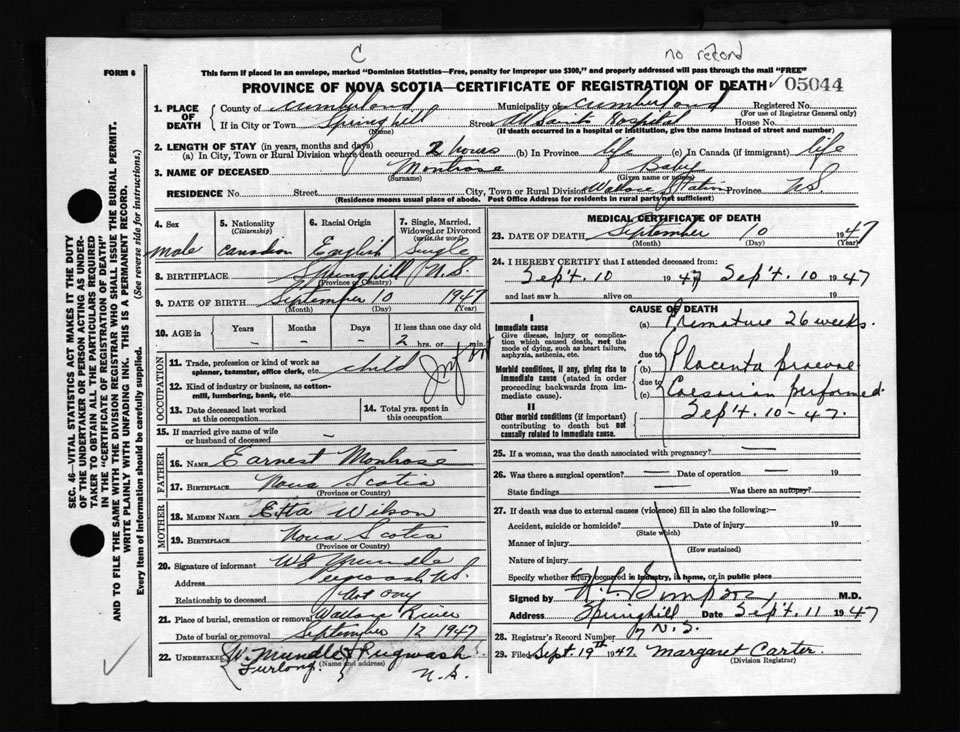 C
no record
FORM 6
This form if placed in an envelope, marked "Dominion Statistics—Free, penalty for improper use $300," and properly addressed will pass through the mail "FREE"
PROVINCE OF NOVA SCOTIA—CERTIFICATE OF REGISTRATION OF DEATH 05044
SEC. 46—VITAL STATISTICS ACT MAKES IT THE DUTY
OF THE UNDERTAKER OR PERSON ACTING AS UNDER-
TAKER TO OBTAIN ALL THE PARTICULARS REQUIRED
IN THE "CERTIFICATE OF REGISTRATION OF DEATH"
AND TO FILE THE SAME WITH THE DIVISION REGISTRAR WHO SHALL ISSUE THE BURIAL PERMIT.
WRITE PLAINLY WITH UNFADING INK. THIS IS A PERMANENT RECORD.
Every item of information should be carefully supplied. (See reverse side for instructions.)
1. PLACE OF DEATH County of Cumberland Municipality of Cumberland Registered No.
(For use of Registrar General only)
If in City or Town Springhill Street Hospital House No.
(Name) (If death occurred in a hospital or institution, give the name instead of street and number)
2. LENGTH OF STAY (in years, months and days)
(a) In City, Town or Rural Division where death occurred 2 hours (b) In Province life (c) In Canada (if immigrant) life
3. NAME OF DECEASED Montrose Baby
(Surname) (Given name or names)
RESIDENCE No. Street City, Town or Rural Division Wallace Station Province N.S.
(Residence means usual place of abode. Post Office Address for residents in rural parts not sufficient)
4. Sex male
5. Nationality (Citizenship) Canadian
6. Racial Origin English
7. Single, Married, Widowed or Divorced (write the word) Single
8. BIRTHPLACE Springhill N.S.
(Province or Country)
9. DATE OF BIRTH September 10 1947
(Month) (Day) (Year)
10. AGE in Years Months Days If less than one day old
- - - 2 hrs. or min.
OCCUPATION
11. Trade, profession or kind of work as spinner, teamster, office clerk, etc. child
12. Kind of industry or business, as cotton-mill, lumbering, bank, etc.
13. Date deceased last worked at this occupation
14. Total yrs. spent in this occupation
15. If married give name of wife or husband of deceased —
FATHER
16. NAME Earnest Montrose
17. BIRTHPLACE Nova Scotia
(Province or Country)
MOTHER
18. MAIDEN NAME Etta Wilson
19. BIRTHPLACE Nova Scotia
(Province or Country)
20. Signature of informant W
Address Pugwash N.S.
Relationship to deceased Not any
21. Place of burial, cremation or removal Wallace River
Date of burial or removal September 12 1947
22. UNDERTAKER W. Mundle & Furlong Pugwash N.S.
(Name and address)
MEDICAL CERTIFICATE OF DEATH
23. DATE OF DEATH September 10 1947
(Month) (Day) (Year)
24. I HEREBY CERTIFY that I attended deceased from:
Sep't. 10 1947 Sep't. 10 1947
and last saw h alive on 19
CAUSE OF DEATH
I
Immediate cause
Give disease, injury or complication which caused death, not the mode of dying, such as heart failure, asphyxia, asthenia, etc.
(a) Premature 26 weeks.
Morbid conditions, if any, giving rise to immediate cause (stated in order proceeding backwards from immediate cause).
due to (b) Placenta praevae
due to (c) Caesarian performed.
Sep't. 10-47.
II
Other morbid conditions (if important) contributing to death but not causally related to immediate cause.
25. If a woman, was the death associated with pregnancy? —
26. Was there a surgical operation? — Date of operation — 19
State findings Was there an autopsy?
27. If death was due to external causes (violence) fill in also the following:—
Accident, suicide or homicide? Date of injury 19
(State which)
Manner of injury
(How sustained)
Nature of injury
Specify whether injury occurred in industry, in home, or in public place
Signed by Simpson M.D.
Address Springhill N.S. Date Sep't. 11 1947
28. Registrar's Record Number
29. Filed Sept. 19th 1947. Margaret Carter.
(Division Registrar)